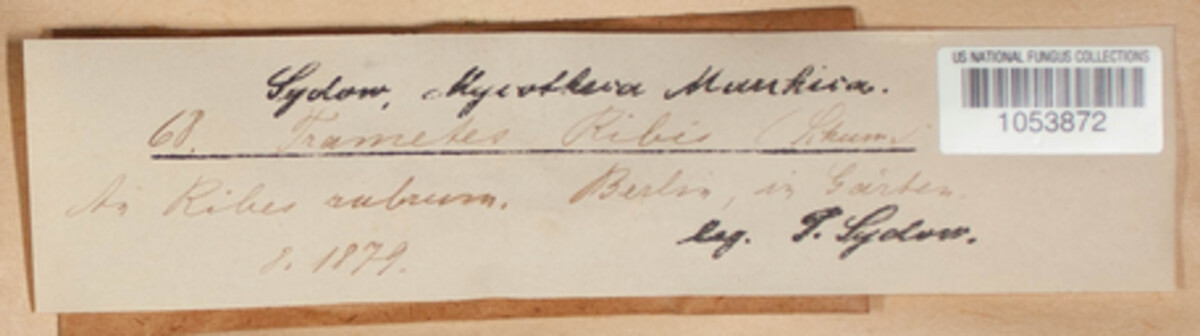 US NATIONAL FUNGUS COLLECTIONS
1053872
Sydow, Mycotheca Marchica.
68. Trametes Ribis (Schum.)
An Ribes rubrum. Berlin, in Gärten.
leg. P. Sydow.
8. 1879.